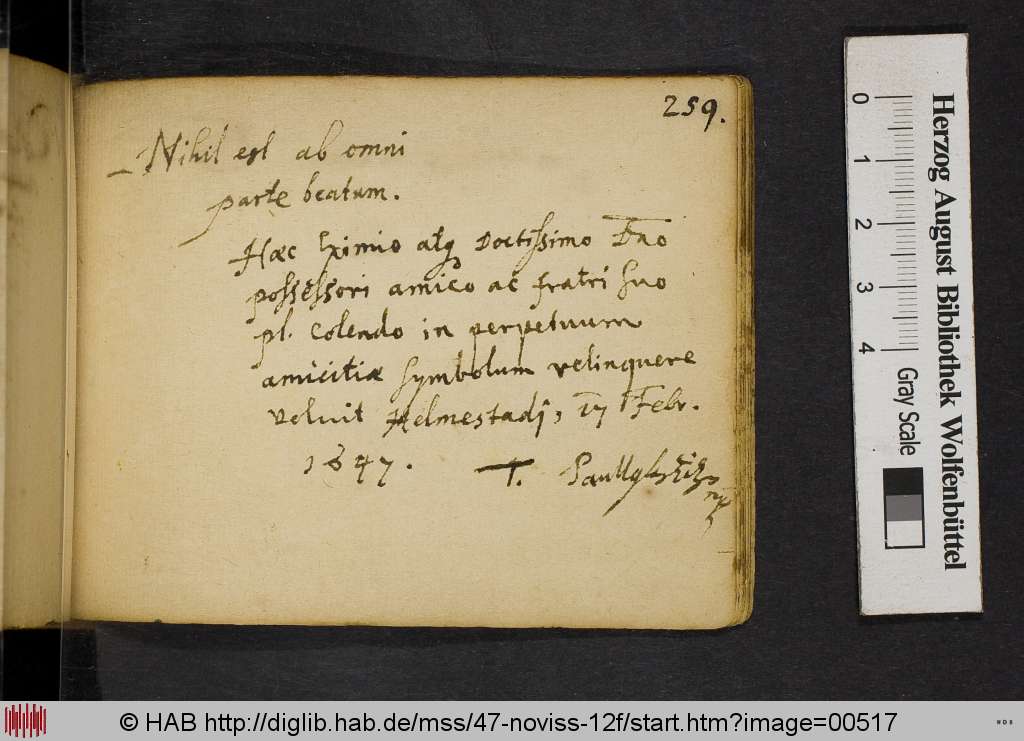 259.
Nihil est ab omni
parte beatum.
Hæc Eximio atq Doctissimo Dno
possessori amico ac fratri suo
pl. Colendo in perpetuum
amicitiæ symbolum relinquere
veluit Helmestadj, 17 Febr.
1647.
T. Paullq
0 1 2 3 4
Gray Scale
Herzog August Bibliothek Wolfenbüttel
© HAB http://diglib.hab.de/mss/47-noviss-12f/start.htm?image=00517
WDB